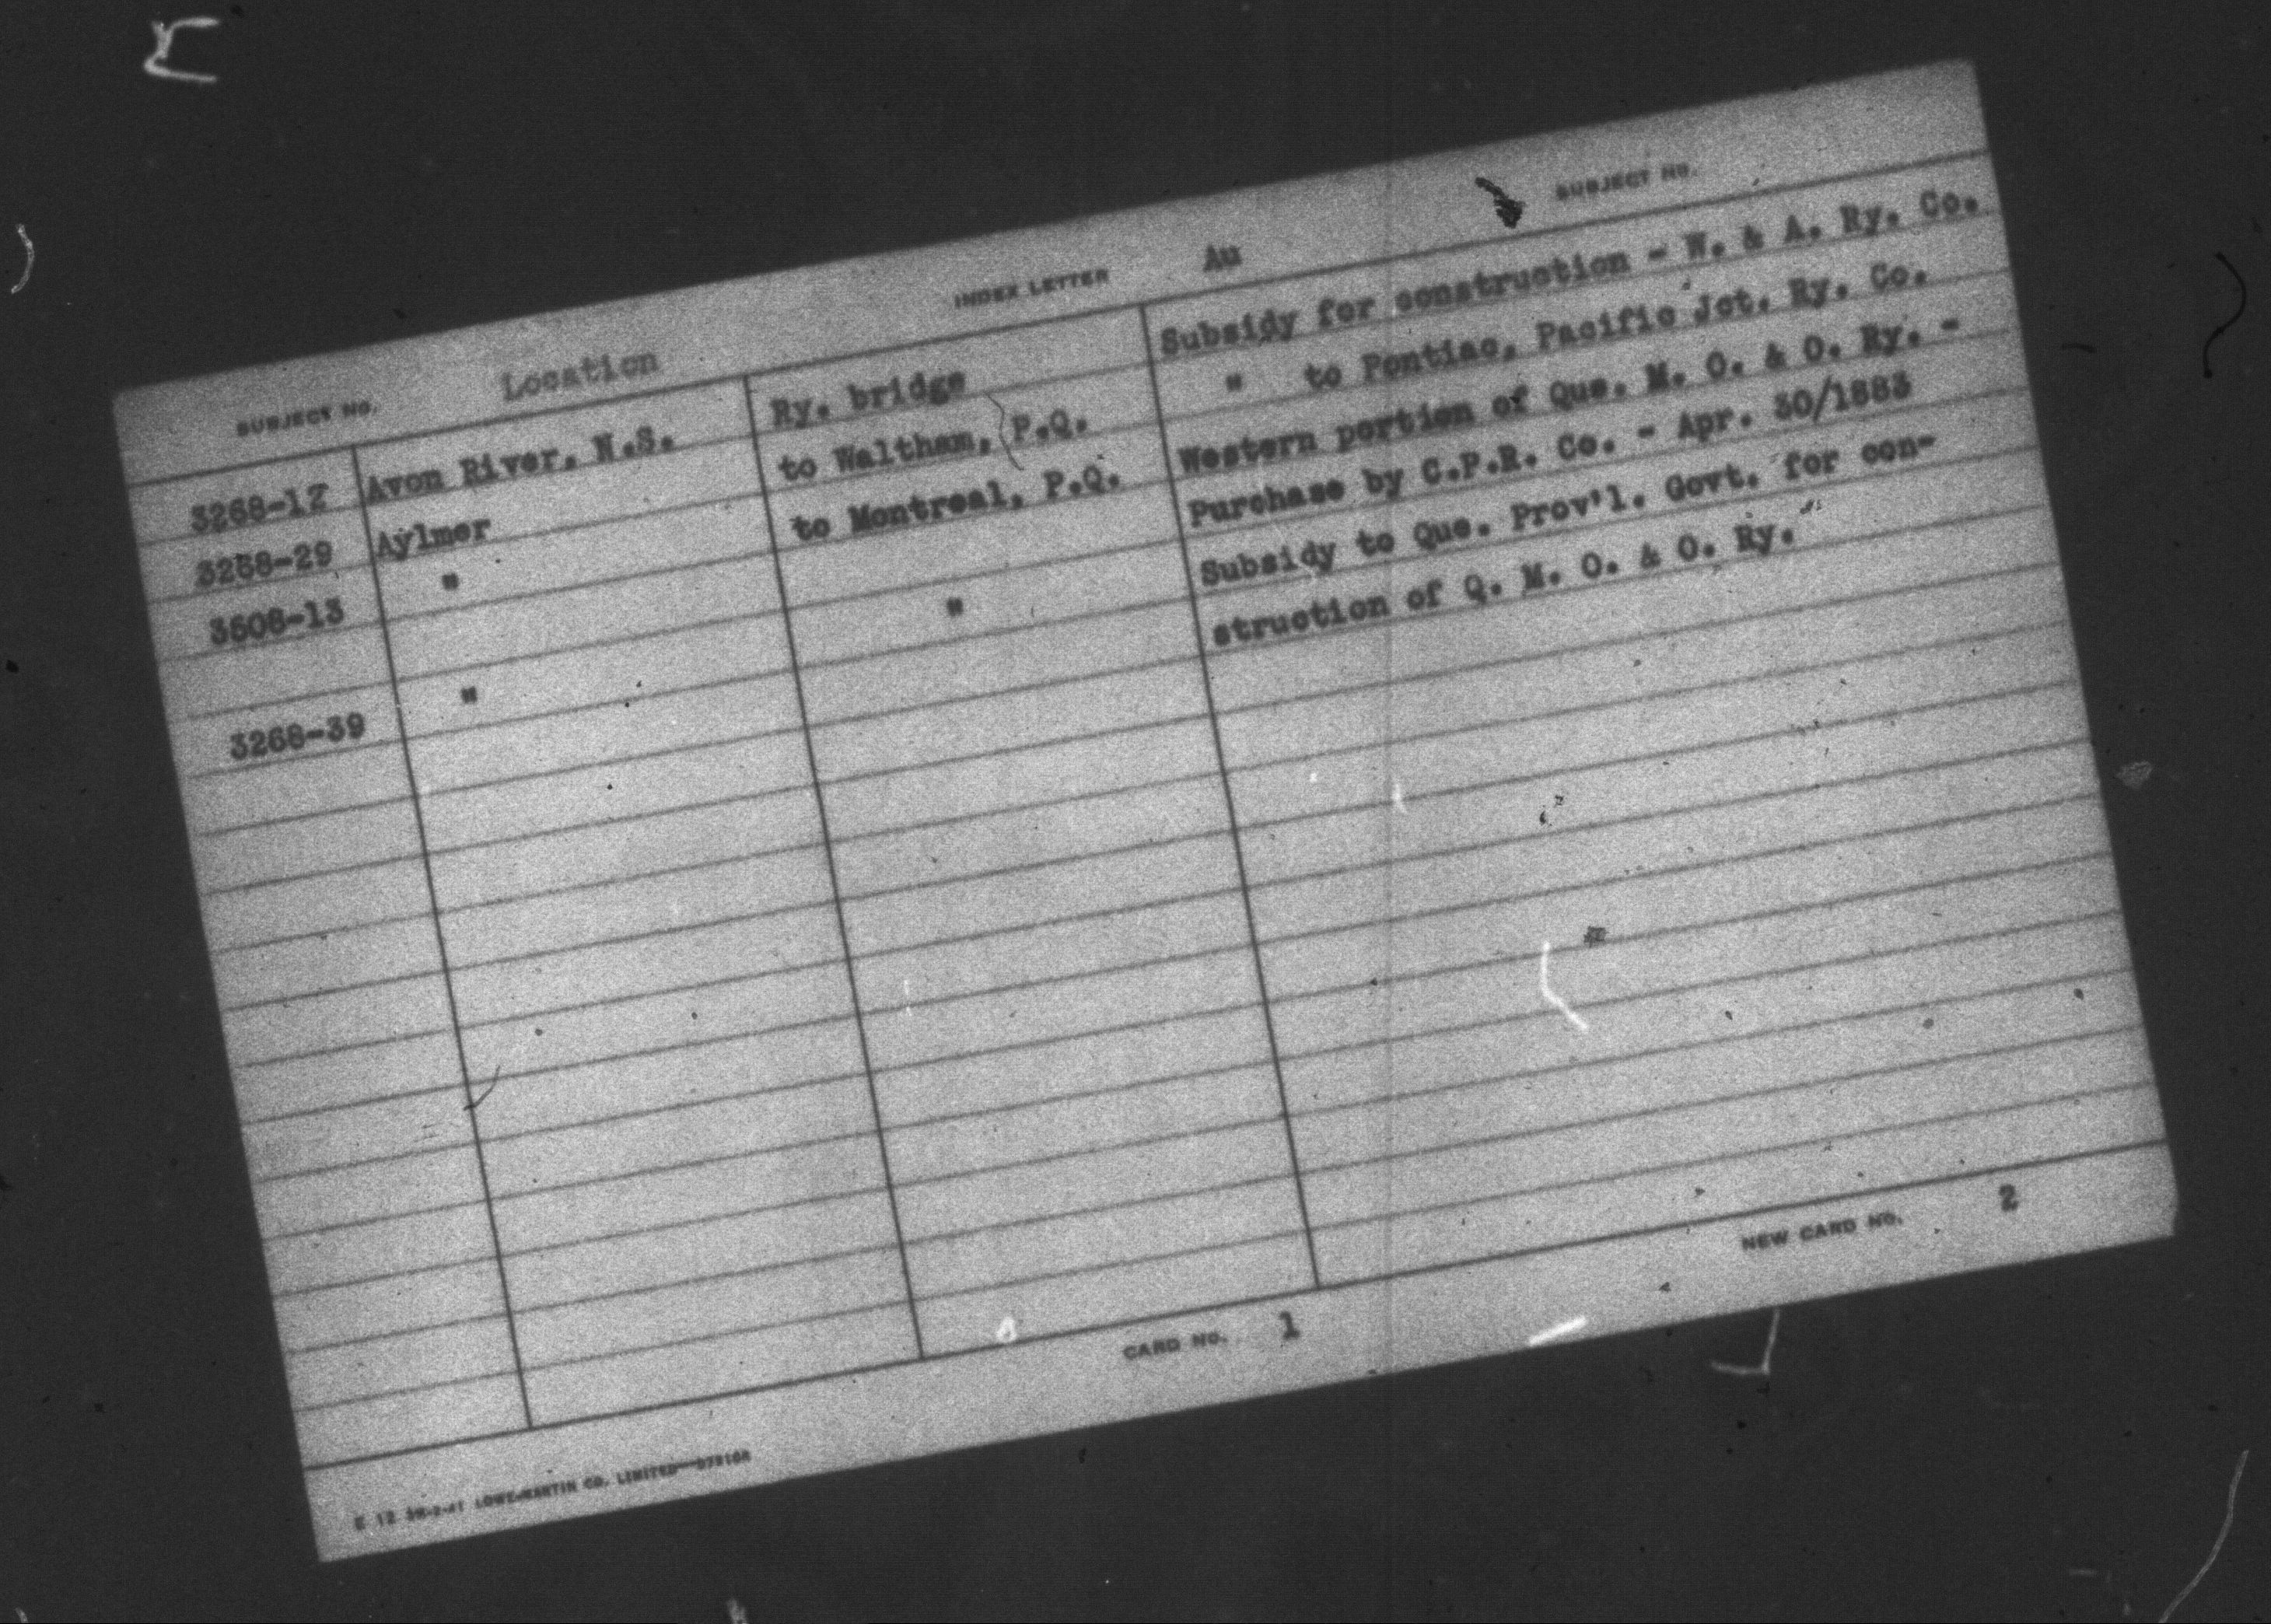 SUBJECT NO. Location INDEX LETTER Au SUBJECT NO.
3268-12 Avon River, N.S. Ry. bridge Subsidy for construction - W. & A. Ry. Co.
3268-29 Aylmer to Waltham, P.Q. " to Pontiac, Pacific Jct. Ry. Co.
3608-13 " to Montreal, P.Q. Western portion of Que. M. O. & O. Ry. -
Purchase by C.P.R. Co. - Apr. 30/1883
3268-39 " " Subsidy to Que. Prov'l. Govt. for con-
struction of Q. M. O. & O. Ry.
CARD NO. 1 NEW CARD NO. 2
E 12 5M-2-41 LOWE-MARTIN CO. LIMITED